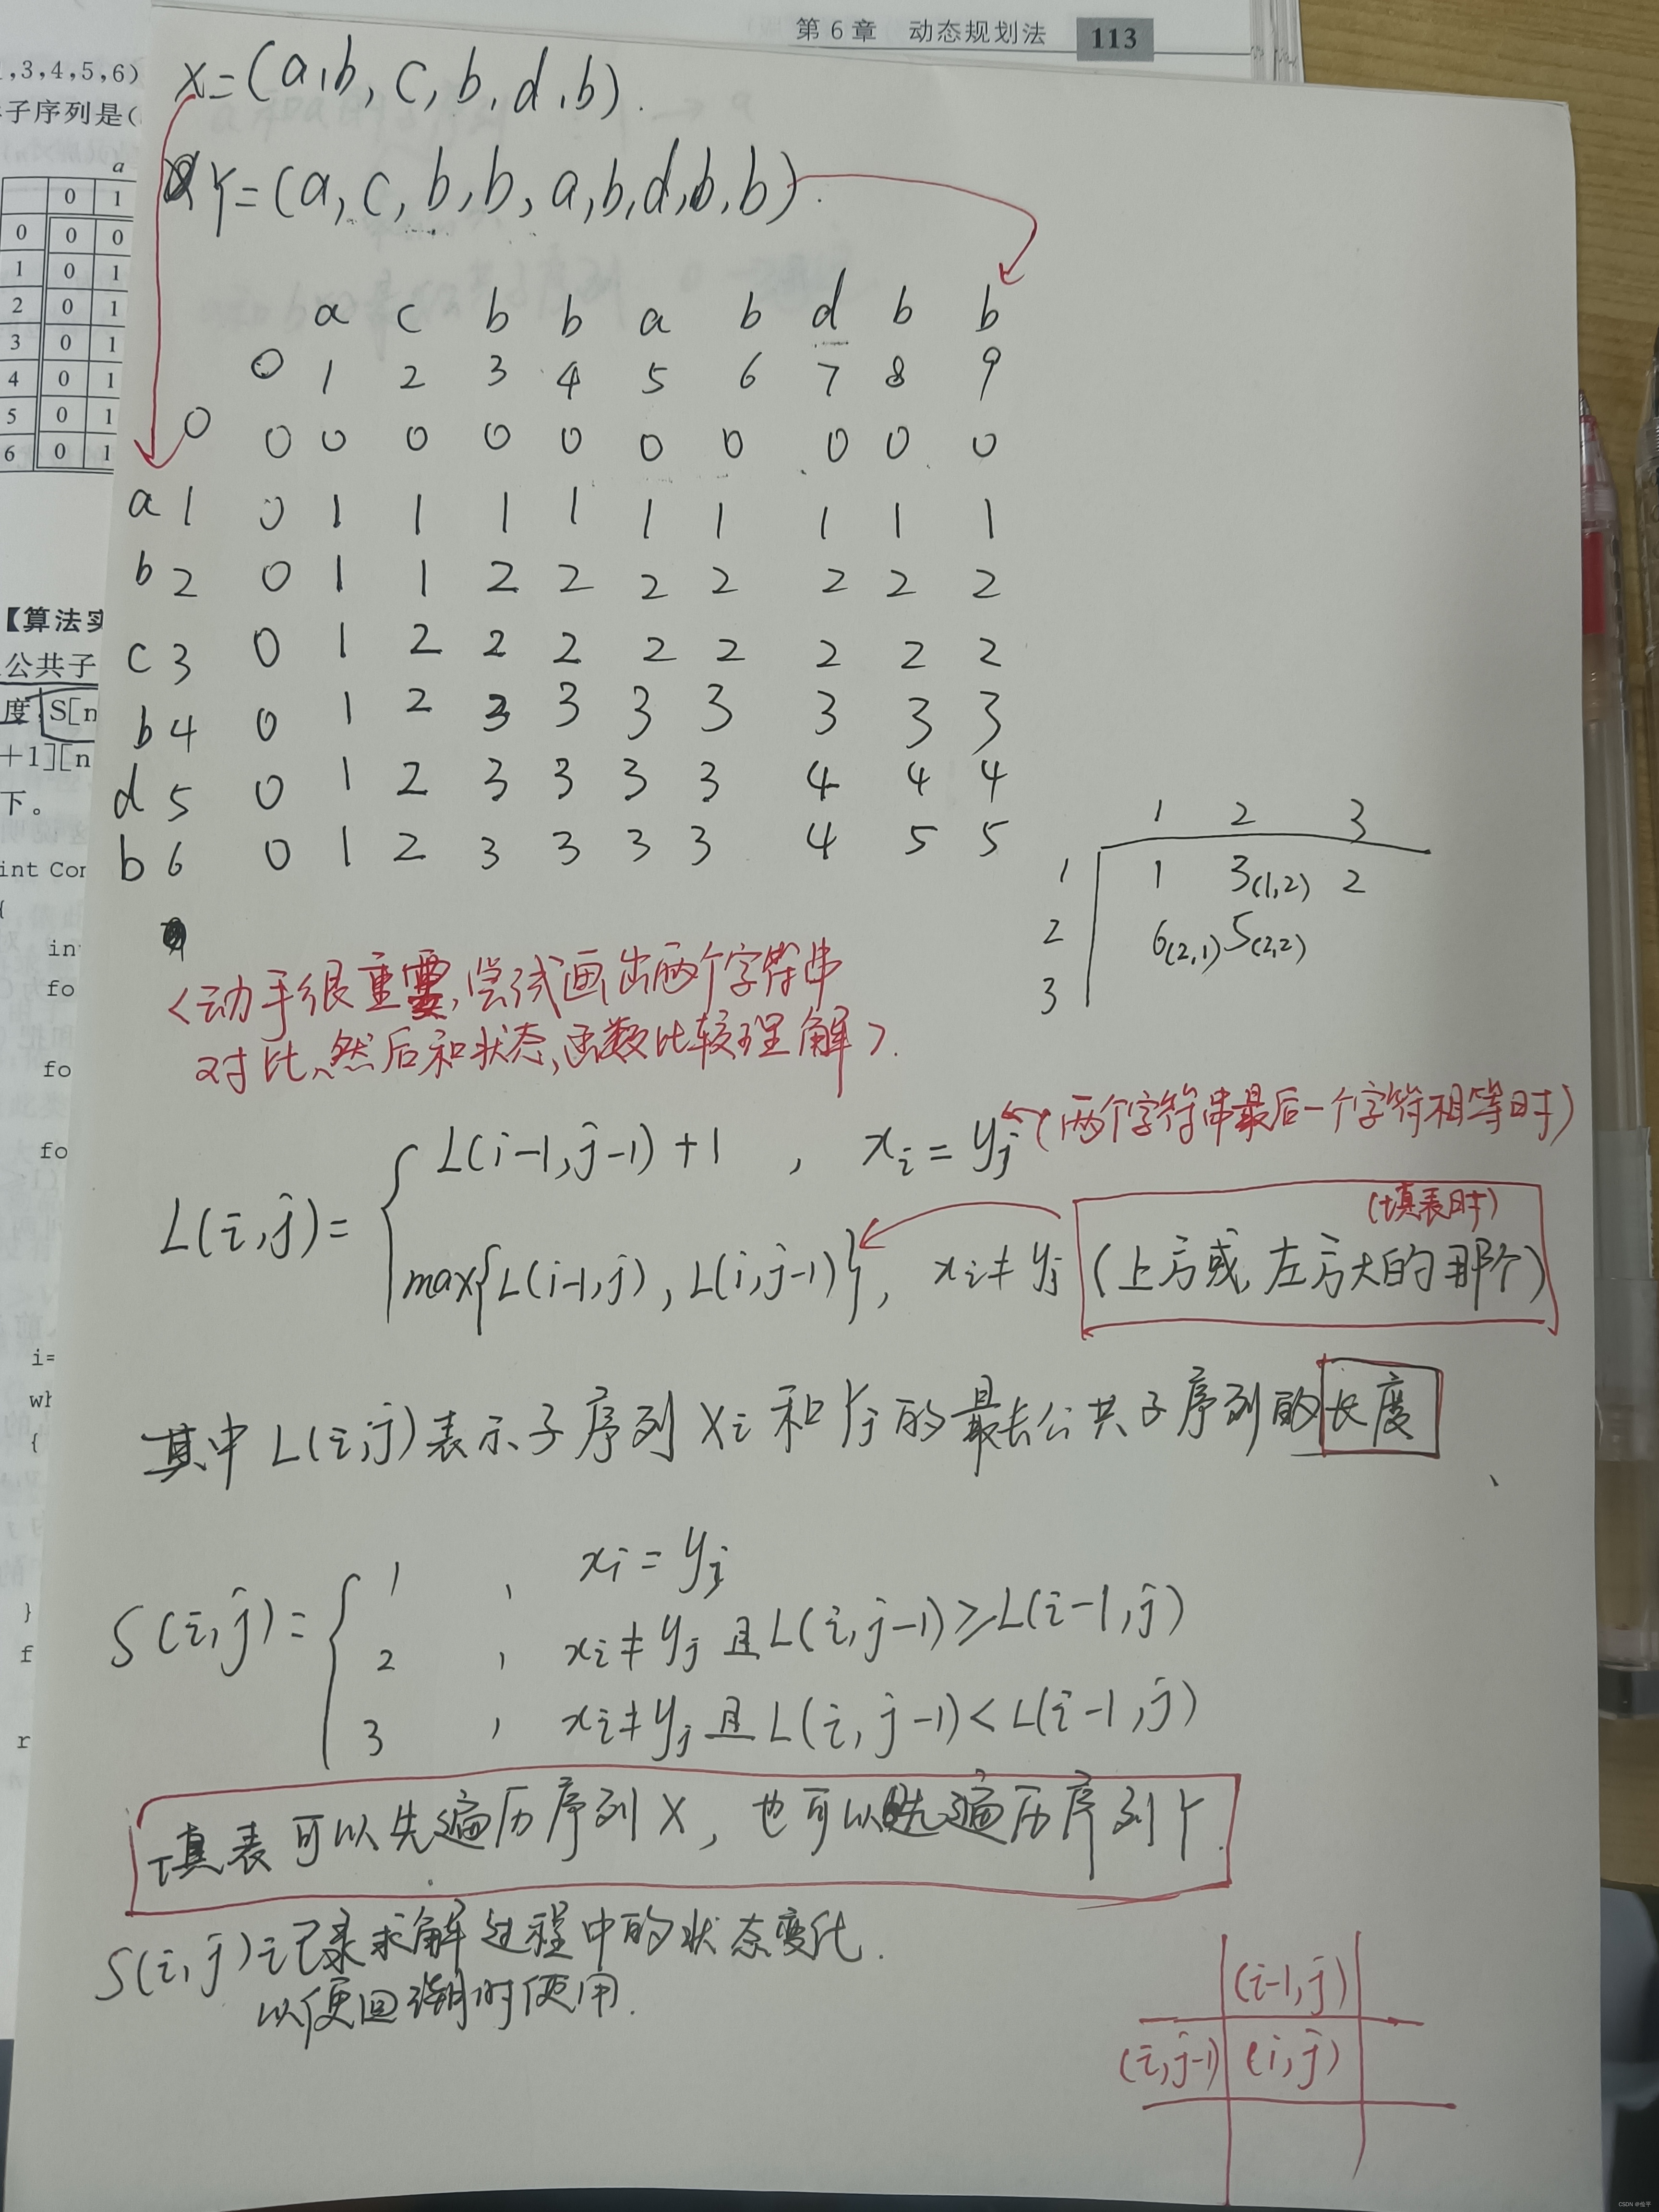 第6章 动态规划法 113
,3,4,5,6)
子序列是(
a
0 1
0 0 0
1 0 1
2 0 1
3 0 1
4 0 1
5 0 1
6 0 1
【算法实
公共子
度, S[n
+1][n
下。
int Com
{
int
fo
fo
fo
i=
wh
{
}
f
r
X=(a,b,c,b,d,b).
Y=(a,c,b,b,a,b,d,b,b).
a c b b a b d b b
0 1 2 3 4 5 6 7 8 9
0 0 0 0 0 0 0 0 0 0 0
a 1 0 1 1 1 1 1 1 1 1 1
b 2 0 1 1 2 2 2 2 2 2 2
c 3 0 1 2 2 2 2 2 2 2 2
b 4 0 1 2 3 3 3 3 3 3 3
d 5 0 1 2 3 3 3 3 4 4 4
b 6 0 1 2 3 3 3 3 4 5 5
1 2 3
1 1 3(1,2) 2
2 6(2,1) 5(2,2)
3
<动手很重要,尝试画出两个字符串
对比、然后和状态,函数比较理解>.
L(i,j)= { L(i-1,j-1)+1 , xi = yj (两个字符串最后一个字符相等时)
max{L(i-1,j), L(i,j-1)}, xi≠yj (上方或左方大的那个) (填表时)
其中L(i,j)表示子序列Xi和Yj的最长公共子序列的长度
S(i,j)= { 1 , xi = yj
2 , xi≠yj 且L(i,j-1)≥L(i-1,j)
3 , xi≠yj且L(i,j-1)<L(i-1,j)
填表可以先遍历序列X, 也可以先遍历序列Y.
S(i,j)记录求解过程中的状态变化.
以便回溯时使用.
(i-1,j)
(i,j-1) (i,j)